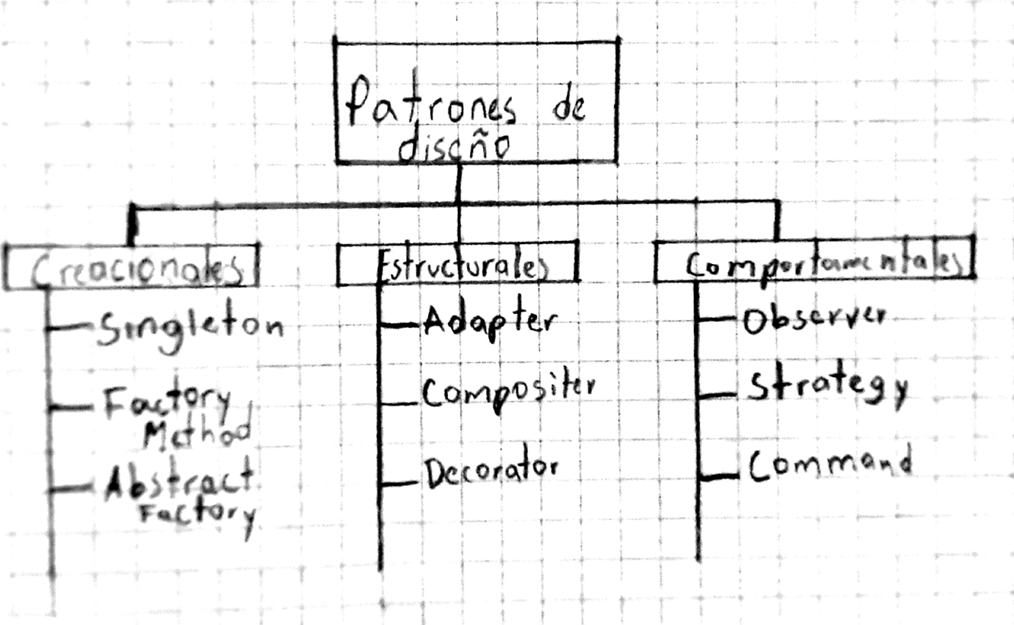 Patrones de
diseño
Creacionales
Singleton
Factory
Method
Abstract
Factory
Estructurales
Adapter
Compositer
Decorator
Comportamentales
Observer
Strategy
Command